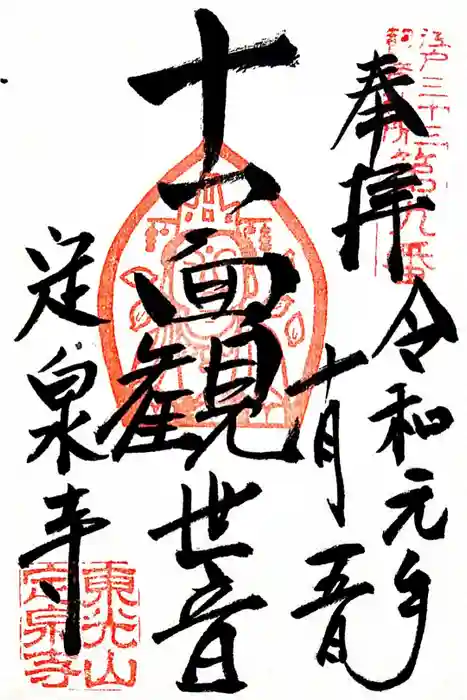 江戸三十三
観音札所第九番
奉拝
令和元年
十月五日
十一面観世音
定泉寺
東光山
定泉寺